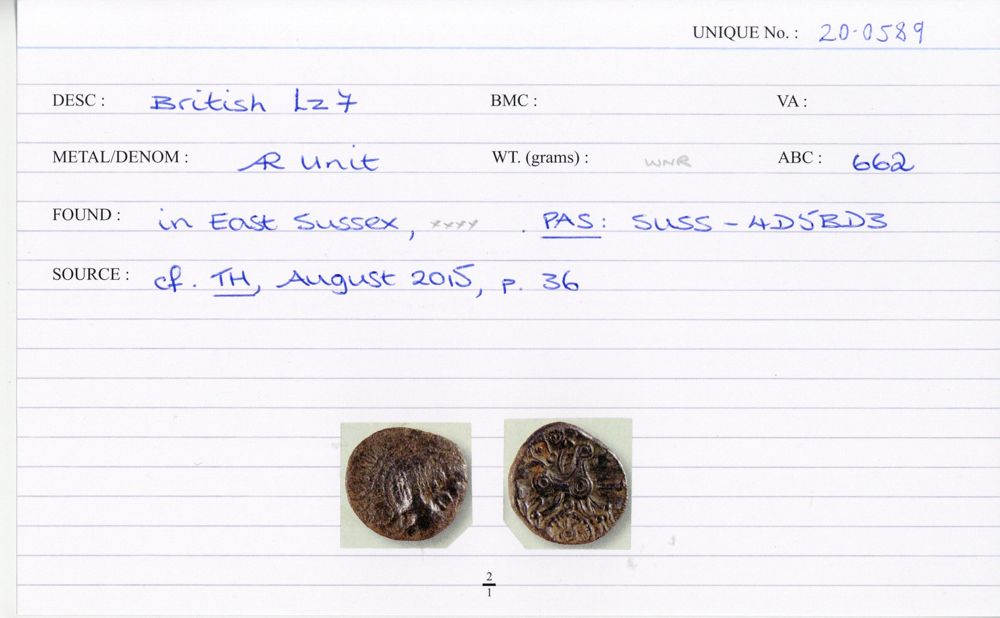 UNIQUE No. : 20-0589
DESC : British Lz7 BMC : VA :
METAL/DENOM : AR Unit WT. (grams) : WNR ABC : 662
FOUND : in East Sussex, xxxx . PAS: SUSS-4D5BD3
SOURCE : cf. TH, August 2015, p. 36
2
1